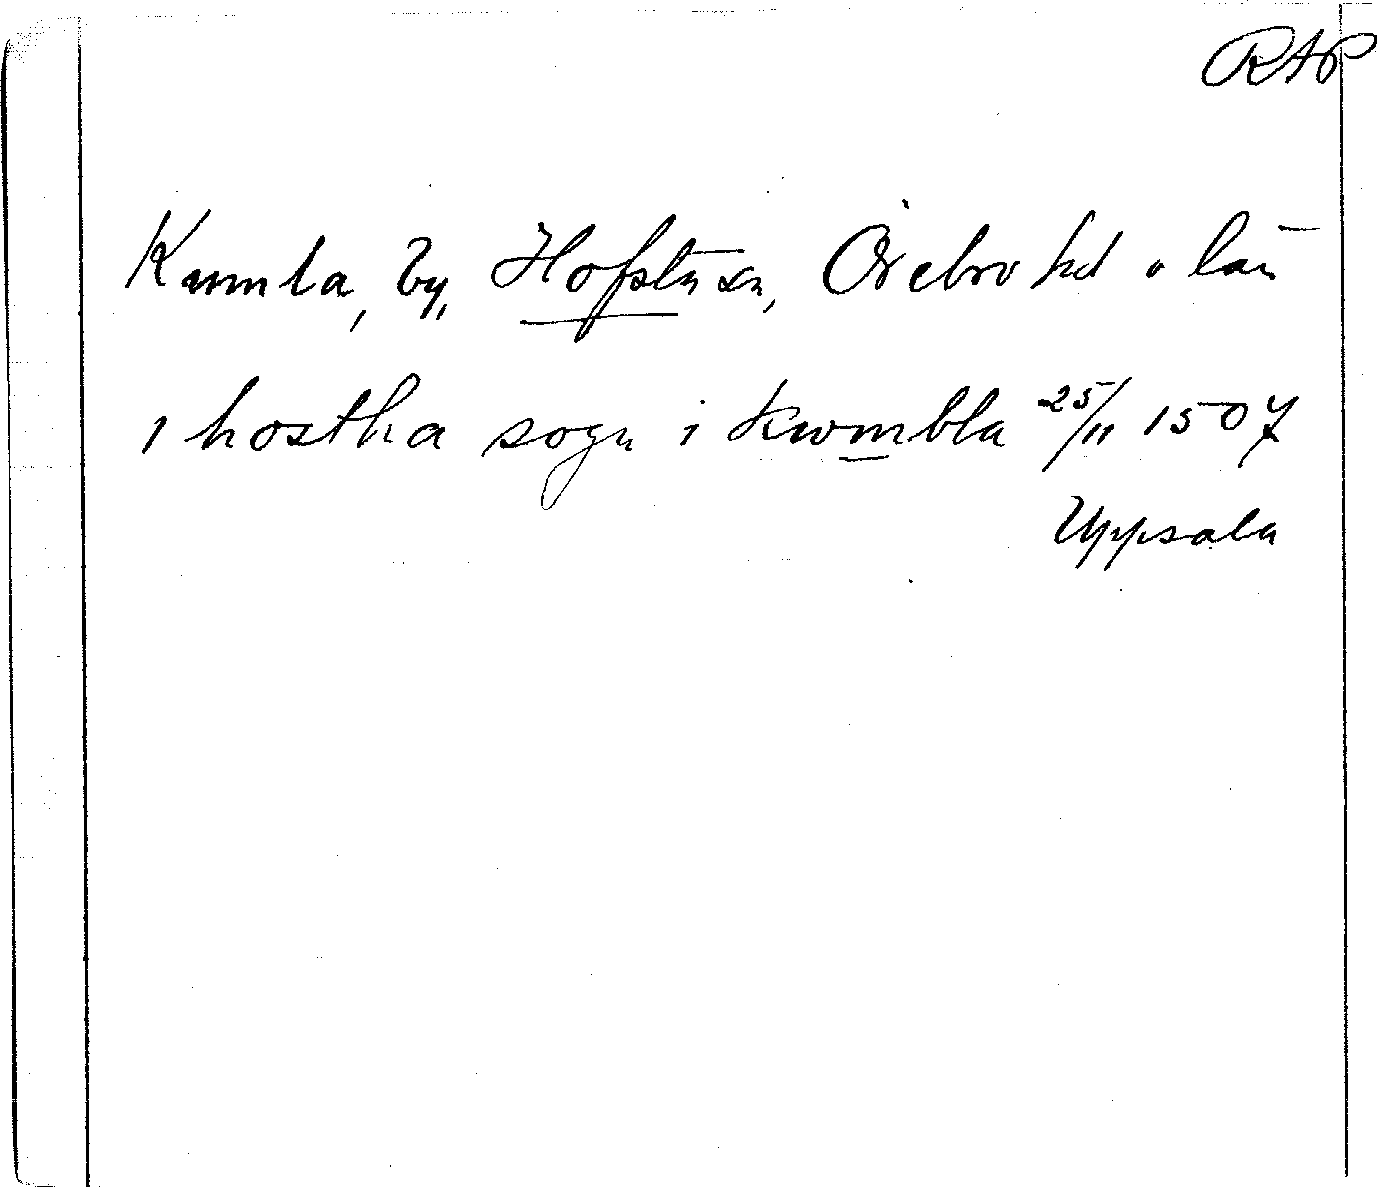 RAP
Kumla, by, Hofsta sn, Örebro hd o län
i hostha sogn i kwmbla 25/11 1507
Uppsala